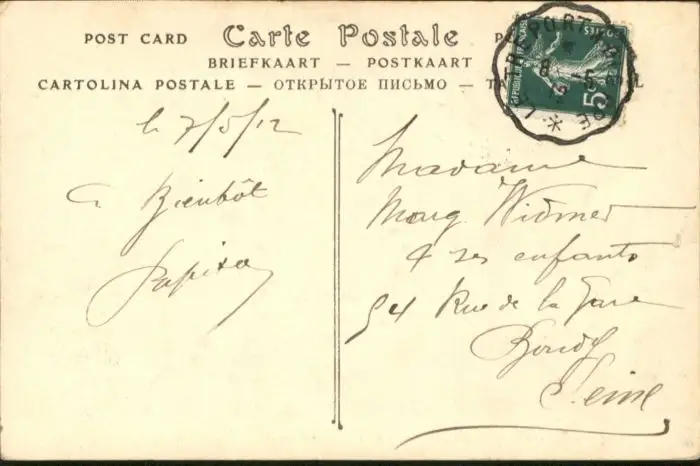 POST CARD Carte Postale P
BRIEFKAART — POSTKAART
CARTOLINA POSTALE — ОТКРЫТОЕ ПИСЬМО — TA L
LE TREPORT
8 - 5
12
POSTES
5
le 7/5/12
A Bientôt
Madame
Marg Widmer
& ses enfants
54 Rue de la Gare
Bondy
Seine